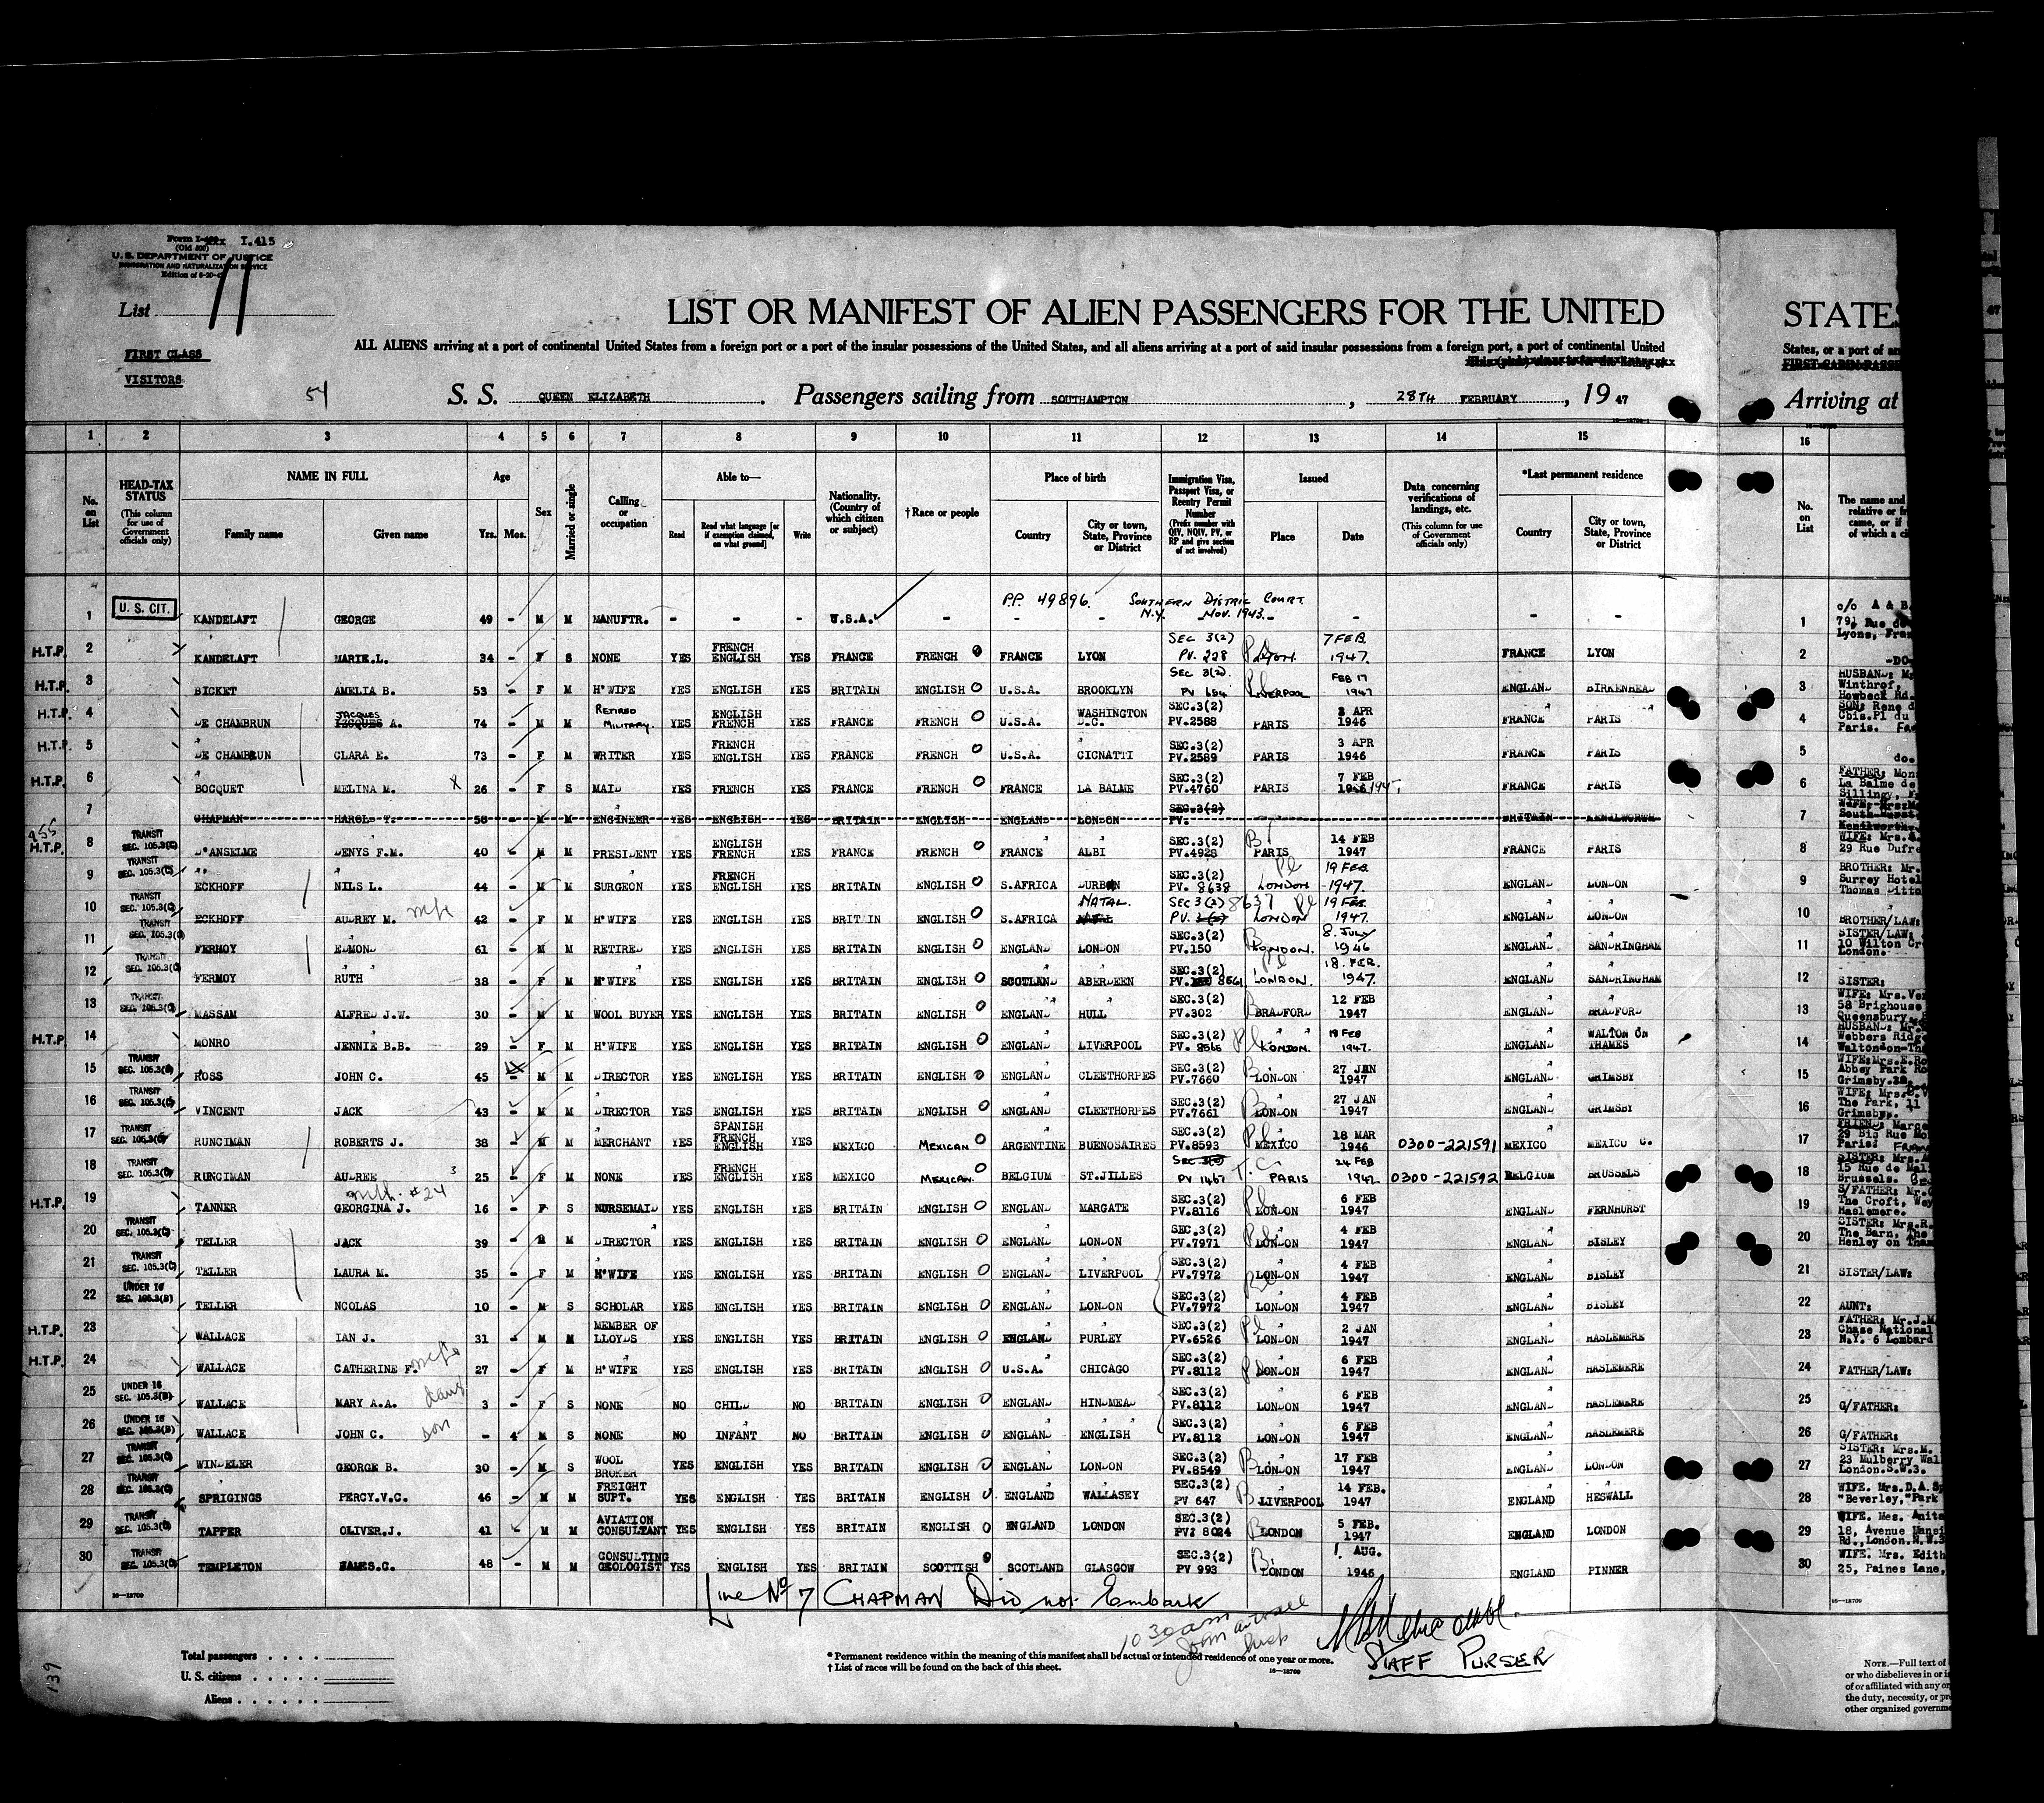 Form I-415
(Old 500)
U. S. DEPARTMENT OF JUSTICE
IMMIGRATION AND NATURALIZATION SERVICE
List 11
LIST OR MANIFEST OF ALIEN PASSENGERS FOR THE UNITED STATES
ALL ALIENS arriving at a port of continental United States from a foreign port or a port of the insular possessions of the United States, and all aliens arriving at a port of said insular possessions from a foreign port, a port of continental United States, or a port of an
FIRST CLASS
VISITORS
54
S. S. QUEEN ELIZABETH. Passengers sailing from SOUTHAMPTON, 28TH FEBRUARY, 19 47 Arriving at
1 2 3 4 5 6 7 8 9 10 11 12 13 14 15 16
No. on List
HEAD-TAX STATUS (This column for use of Government officials only)
NAME IN FULL Family name Given name
Age Yrs. Mos.
Sex
Married or single
Calling or occupation
Able to— Read Read what language [or if exemption claimed, on what ground] Write
Nationality. (Country of which citizen or subject)
†Race or people
Place of birth Country City or town, State, Province or District
Immigration Visa, Passport Visa, or Reentry Permit Number (Prefix number with QIV, NQIV, PV, or RP and give section of act involved)
Issued Place Date
Data concerning verifications of landings, etc. (This column for use of Government officials only)
*Last permanent residence Country City or town, State, Province or District
No. on List
The name and
relative or fr
came, or if
of which a ci
1 U. S. CIT. KANDELAFT GEORGE 49 - M M MANUFTR. - - - U.S.A. - P.P. 49896. SOUTHERN DISTRIC COURT N.Y. NOV. 1943. - - - 1 c/o A & B.
H.T.P. 2 KANDELAFT MARIE.L. 34 - F S NONE YES FRENCH ENGLISH YES FRANCE FRENCH FRANCE LYON SEC 3(2) PV. 228 LYON. 7 FEB. 1947. FRANCE LYON 2 -DO-
H.T.P. 3 BICKET AMELIA B. 53 - F M H'WIFE YES ENGLISH YES BRITAIN ENGLISH U.S.A. BROOKLYN SEC 3(2). PV 654 LIVERPOOL FEB 17 1947 ENGLAND BIRKENHEAD 3 HUSBAND: M. Winthrop, Howbeck Rd.
H.T.P. 4 DE CHAMBRUN JACQUES A. 74 - M M RETIRED MILITARY. YES ENGLISH FRENCH YES FRANCE FRENCH U.S.A. WASHINGTON D.C. SEC.3(2) PV.2588 PARIS 3 APR 1946 FRANCE PARIS 4 SON: Rene d
H.T.P. 5 DE CHAMBRUN CLARA E. 73 - F M WRITER YES FRENCH ENGLISH YES FRANCE FRENCH U.S.A. CICNATTI SEC.3(2) PV.2589 PARIS 3 APR 1946 FRANCE PARIS 5 do.
H.T.P. 6 BOCQUET MELINA M. X 26 - F S MAID YES FRENCH YES FRANCE FRENCH FRANCE LA BALME SEC.3(2) PV.4760 PARIS 7 FEB 1947 FRANCE PARIS 6 FATHER: Mon La Balme de Sillingy,
7 CHAPMAN HAROLD T. 58 - M M ENGINEER YES ENGLISH YES BRITAIN ENGLISH ENGLAND LONDON SEC.3(2) PV. BRITAIN KENILWORTH 7
H.T.P. 8 TRANSIT SEC. 105.3(C) D'ANSELME DENYS F.M. 40 - M M PRESIDENT YES ENGLISH FRENCH YES FRANCE FRENCH FRANCE ALBI SEC.3(2) PV.4928 PARIS 14 FEB 1947 FRANCE PARIS 8 WIFE: Mrs. 29 Rue Dufre
9 TRANSIT SEC. 105.3(C) ECKHOFF NILS L. 44 - M M SURGEON YES FRENCH ENGLISH YES BRITAIN ENGLISH S.AFRICA DURBAN SEC.3(2) PV. 8638 LONDON 19 FEB. 1947. ENGLAND LONDON 9 BROTHER: Mr. Surrey Hotel Thomas Ditto
10 TRANSIT SEC. 105.3(C) ECKHOFF AUDREY M. wife 42 - F M H'WIFE YES ENGLISH YES BRITAIN ENGLISH S.AFRICA NATAL. SEC 3(2) 8637 PV. LONDON 19 FEB. 1947. ENGLAND LONDON 10 BROTHER/LAW:
11 TRANSIT SEC. 105.3(C) FERMOY EDMOND 61 - M M RETIRED YES ENGLISH YES BRITAIN ENGLISH ENGLAND LONDON SEC.3(2) PV.150 LONDON. 8. JULY 1946 ENGLAND SANDRINGHAM 11 SISTER/LAW: 10 Wilton Cr London.
12 TRANSIT SEC. 105.3(C) FERMOY RUTH 38 - F M H'WIFE YES ENGLISH YES BRITAIN ENGLISH SCOTLAND ABERDEEN SEC.3(2) PV. 8561 LONDON. 18. FEB. 1947. ENGLAND SANDRINGHAM 12 SISTER:
13 TRANSIT SEC. 105.3(C) MASSAM ALFRED J.W. 30 - M M WOOL BUYER YES ENGLISH YES BRITAIN ENGLISH ENGLAND HULL SEC.3(2) PV.302 BRADFORD 12 FEB 1947 ENGLAND BRADFORD 13 WIFE: Mrs.Ver 58 Brighouse Queensbury.
H.T.P. 14 MONRO JENNIE B.B. 29 - F M H'WIFE YES ENGLISH YES BRITAIN ENGLISH ENGLAND LIVERPOOL SEC.3(2) PV. 8565 LONDON. 18 FEB 1947. ENGLAND WALTON ON THAMES 14 HUSBAND: Mr. Webbers Ridge
15 TRANSIT SEC. 105.3(C) ROSS JOHN C. 45 - M M DIRECTOR YES ENGLISH YES BRITAIN ENGLISH ENGLAND CLEETHORPES SEC.3(2) PV.7660 LONDON 27 JAN 1947 ENGLAND GRIMSBY 15 WIFE:Mrs.E.Ro Abbey Park Ro Grimsby.
16 TRANSIT SEC. 105.3(C) VINCENT JACK 43 - M M DIRECTOR YES ENGLISH YES BRITAIN ENGLISH ENGLAND CLEETHORPES SEC.3(2) PV.7661 LONDON 27 JAN 1947 ENGLAND GRIMSBY 16 WIFE: Mrs. The Park, 11 Grimsby.
17 TRANSIT SEC. 105.3(C) RUNCIMAN ROBERTS J. 38 - M M MERCHANT YES SPANISH FRENCH ENGLISH YES MEXICO MEXICAN ARGENTINE BUENOSAIRES SEC.3(2) PV.8593 MEXICO 18 MAR 1946 0300-221591 MEXICO MEXICO C. 17 FRIEND: Marce
18 TRANSIT SEC. 105.3(C) RUNCIMAN AUDREE 25 - F M NONE YES FRENCH ENGLISH YES MEXICO MEXICAN. BELGIUM ST.JILLES PV 1467 PARIS 24 FEB 1947 0300-221592 BELGIUM BRUSSELS 18 SISTER: Mrs. 15 Rue de Brussels.
H.T.P. 19 TANNER GEORGINA J. with #24 16 - F S NURSEMAID YES ENGLISH YES BRITAIN ENGLISH ENGLAND MARGATE SEC.3(2) PV.8116 LONDON 6 FEB 1947 ENGLAND FERNHURST 19 S/FATHER: Mr. The Croft, Way Haslemere.
20 TRANSIT SEC. 105.3(C) TELLER JACK 39 - M M DIRECTOR YES ENGLISH YES BRITAIN ENGLISH ENGLAND LONDON SEC.3(2) PV.7971 LONDON 4 FEB 1947 ENGLAND BISLEY 20 SISTER: Mrs.R. The Barn, The Henley on Tham
21 TRANSIT SEC. 105.3(C) TELLER LAURA M. 35 - F M H'WIFE YES ENGLISH YES BRITAIN ENGLISH ENGLAND LIVERPOOL SEC.3(2) PV.7972 LONDON 4 FEB 1947 ENGLAND BISLEY 21 SISTER/LAW:
22 UNDER 16 SEC. 105.3(B) TELLER NCOLAS 10 - M S SCHOLAR YES ENGLISH YES BRITAIN ENGLISH ENGLAND LONDON SEC.3(2) PV.7972 LONDON 4 FEB 1947 ENGLAND BISLEY 22 AUNT:
H.T.P. 23 WALLACE IAN J. 31 - M M MEMBER OF LLOYDS YES ENGLISH YES BRITAIN ENGLISH ENGLAND PURLEY SEC.3(2) PV.6526 LONDON 2 JAN 1947 ENGLAND HASLEMERE 23 FATHER: Mr.J.M Chase National N.Y. 6 Lombard
H.T.P. 24 WALLACE CATHERINE F. wife 27 - F M H'WIFE YES ENGLISH YES BRITAIN ENGLISH U.S.A. CHICAGO SEC.3(2) PV.8112 LONDON 6 FEB 1947 ENGLAND HASLEMERE 24 FATHER/LAW:
25 UNDER 16 SEC. 105.3(B) WALLACE MARY A.A. daug 3 - F S NONE NO CHILD NO BRITAIN ENGLISH ENGLAND HINDHEAD SEC.3(2) PV.8112 LONDON 6 FEB 1947 ENGLAND HASLEMERE 25 G/FATHER:
26 UNDER 16 SEC. 105.3(B) WALLACE JOHN C. son - 4 M S NONE NO INFANT NO BRITAIN ENGLISH ENGLAND ENGLISH SEC.3(2) PV.8112 LONDON 6 FEB 1947 ENGLAND HASLEMERE 26 G/FATHER:
27 TRANSIT SEC. 105.3(C) WINDELER GEORGE B. 30 - M S WOOL BROKER YES ENGLISH YES BRITAIN ENGLISH ENGLAND LONDON SEC.3(2) PV.8549 LONDON 17 FEB 1947 ENGLAND LONDON 27 SISTER: Mrs.M. 23 Mulberry Wal London.S.W.3.
28 TRANSIT SEC. 105.3(C) SPRIGINGS PERCY.V.C. 46 - M M FREIGHT SUPT. YES ENGLISH YES BRITAIN ENGLISH ENGLAND WALLASEY SEC.3(2) PV 647 LIVERPOOL 14 FEB. 1947 ENGLAND HESWALL 28 WIFE. Mrs.D.A.Sp "Beverley,"Park
29 TRANSIT SEC. 105.3(C) TAPPER OLIVER.J. 41 - M M AVIATION CONSULTANT YES ENGLISH YES BRITAIN ENGLISH ENGLAND LONDON SEC.3(2) PV: 8024 LONDON 5 FEB. 1947 ENGLAND LONDON 29 WIFE. Mes. Anita 18, Avenue Mansi Rd., London.N.W.3
30 TRANSIT SEC. 105.3(C) TEMPLETON JAMES.C. 48 - M M CONSULTING GEOLOGIST YES ENGLISH YES BRITAIN SCOTTISH SCOTLAND GLASGOW SEC.3(2) PV 993 LONDON 1. AUG. 1946 ENGLAND PINNER 30 WIFE. Mrs. Edith 25, Paines Lane,
16—18709
Line No 7 CHAPMAN Did not Embark
10 30 am
STAFF PURSER
Total passengers
U. S. citizens
Aliens
* Permanent residence within the meaning of this manifest shall be actual or intended residence of one year or more.
† List of races will be found on the back of this sheet.
16—18709
139
NOTE.—Full text of
or who disbelieves in or is
of or affiliated with any or
the duty, necessity, or pr
other organized governme